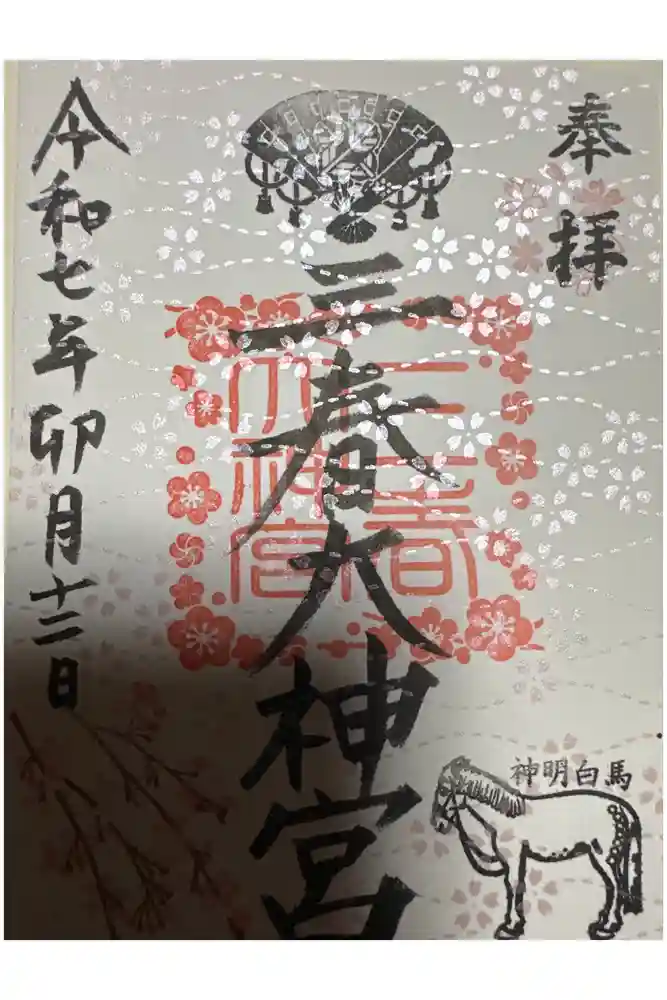 奉拝
三春大神宮
三春
大神宮
令和七年卯月十二日
馬白明神